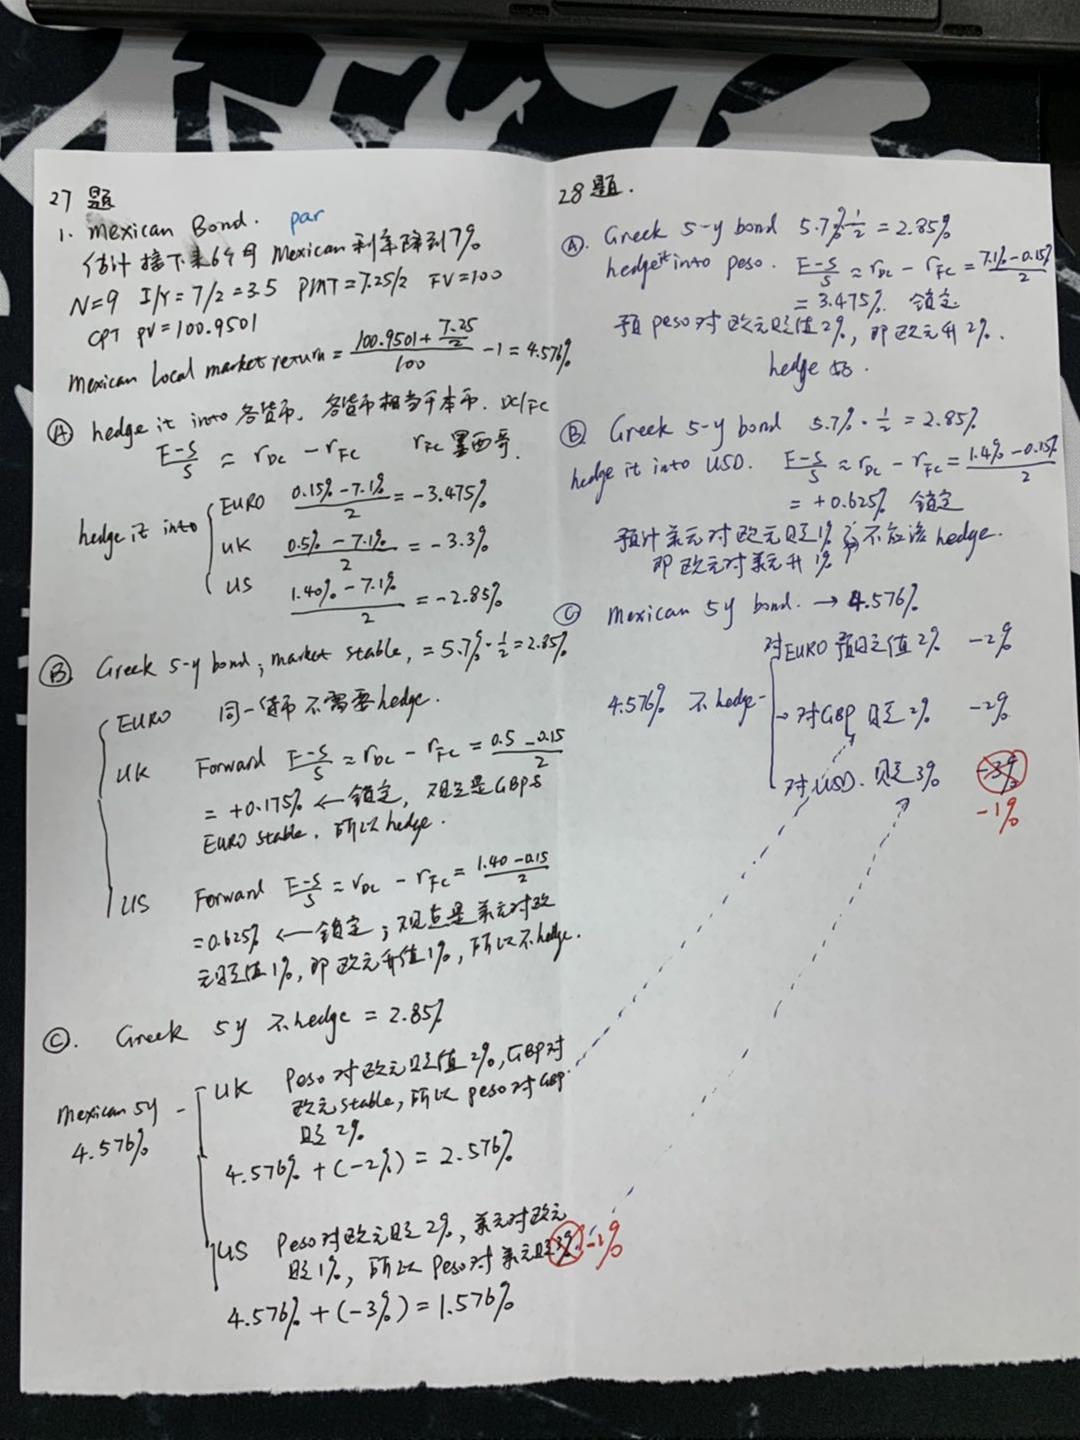 27 题
1. Mexican Bond. par
估计接下来6个月 Mexican 利率降到7%
N=9 I/Y=7/2=3.5 PMT=7.25/2 FV=100
CPT PV=100.9501
Mexican Local market return = (100.9501+7.25/2)/100 -1=4.576%
Ⓐ hedge it into 各货币. 各货币相当于本币. DC/FC
F-S/S ≈ rDC - rFC rFC 墨西哥.
hedge it into
EURO (0.15%-7.1%)/2 = -3.475%
UK (0.5%-7.1%)/2 = -3.3%
US (1.40%-7.1%)/2 = -2.85%
Ⓑ Greek 5-y bond, market stable, = 5.7%·1/2=2.85%
EURO 同一货币不需要hedge.
UK Forward F-S/S ≈ rDC - rFC = (0.5-0.15)/2
= +0.175% ← 锁定, 观点是GBP&
EURO stable. 所以hedge.
US Forward F-S/S ≈ rDC - rFC = (1.40-0.15)/2
=0.625% ← 锁定; 观点是美元对欧
元贬值1%, 即欧元升值1%, 所以不hedge.
Ⓒ. Greek 5y 不hedge = 2.85%
Mexican 5y
4.576%
UK Peso对欧元贬值2%, GBP对
欧元stable, 所以peso对GBP
贬2%
4.576%+(-2%)=2.576%
US Peso对欧元贬2%, 美元对欧元
贬1%, 所以Peso对美元贬3%. -1%
4.576%+(-3%)=1.576%
28题.
Ⓐ. Greek 5-y bond 5.7%·1/2=2.85%
hedge it into peso. F-S/S ≈ rDC - rFC = (7.1%-0.15%)/2
= 3.475%. 锁定
预peso对欧元贬值2%, 即欧元升2%.
hedge 好.
Ⓑ Greek 5-y bond 5.7%·1/2=2.85%
hedge it into USD. F-S/S ≈ rDC - rFC = (1.4%-0.15%)/2
= +0.625% 锁定
预计美元对欧元贬1% 不应该hedge.
即欧元对美元升1%
Ⓒ Mexican 5y bond. → 4.576%
对EURO 预贬值2% -2%
4.576% 不hedge → 对GBP 贬2% -2%
对USD. 贬3% -3%
-1%